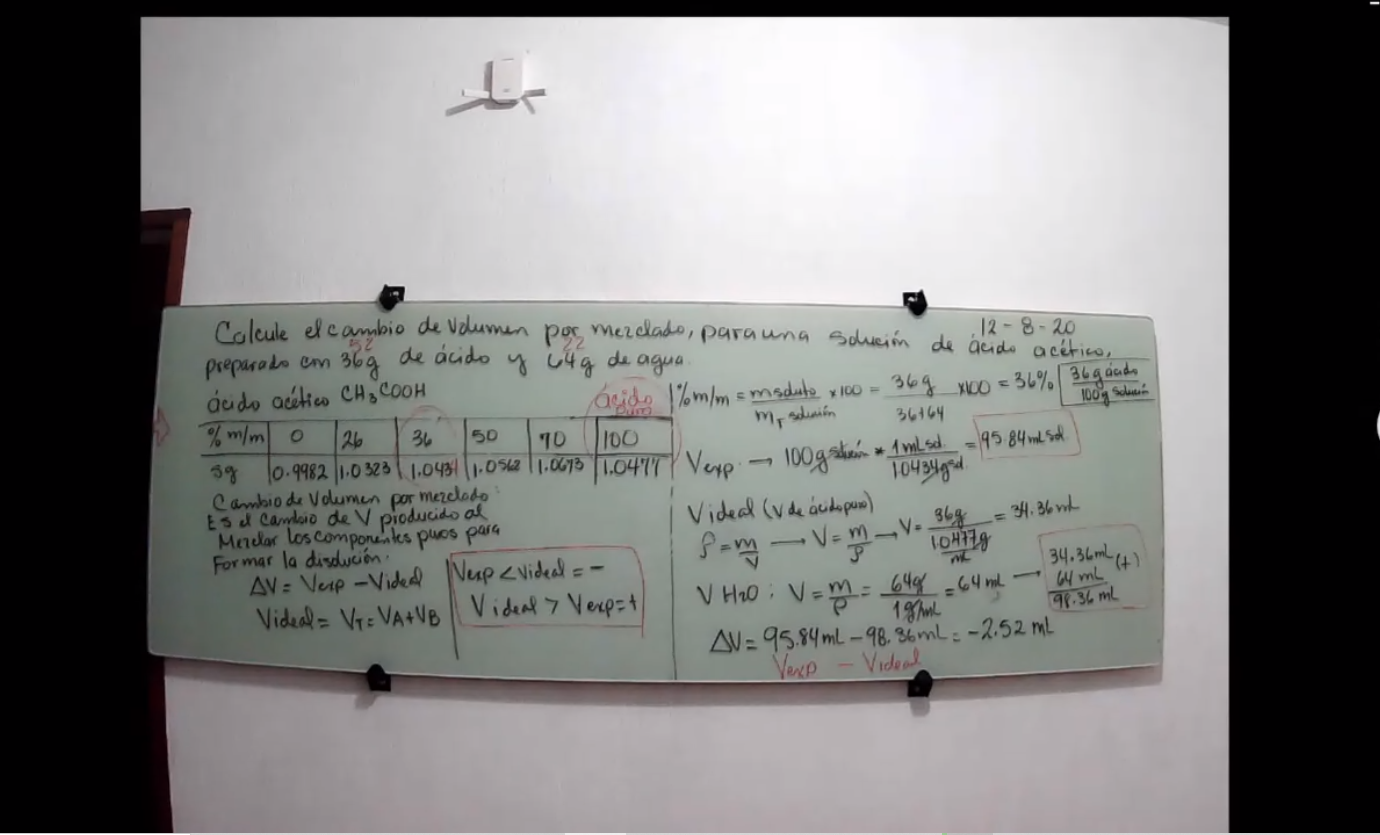 Calcule el cambio de Volumen por mezclado, para una solución de ácido acético,
12 - 8 - 20
52 22
preparado con 36g de ácido y 64g de agua.
ácido acético CH3COOH
ácido
puro
% m/m 0 26 36 50 70 100
sg 0.9982 1.0323 1.0434 1.0562 1.0673 1.0477
Cambio de Volumen por mezclado:
Es el cambio de V producido al
Mezclar los componentes puros para
Formar la disolución.
ΔV = Vexp - Videal
Videal = VT = VA + VB
Vexp < Videal = -
Videal > Vexp = +
% m/m = m soluto / mT solución × 100 = 36g / 36+64 × 100 = 36%
36g ácido / 100g solución
Vexp. → 100g solución * 1mL sol. / 1.0434g sol = 95.84mL sol
Videal (V de ácido puro)
ρ = m/V → V = m/ρ → V = 36g / 1.0477g/mL = 34.36 mL
V H2O : V = m/ρ = 64g / 1g/mL = 64 mL →
34.36mL (+)
64 mL
98.36 mL
ΔV = 95.84mL - 98.36mL = -2.52 mL
Vexp - Videal